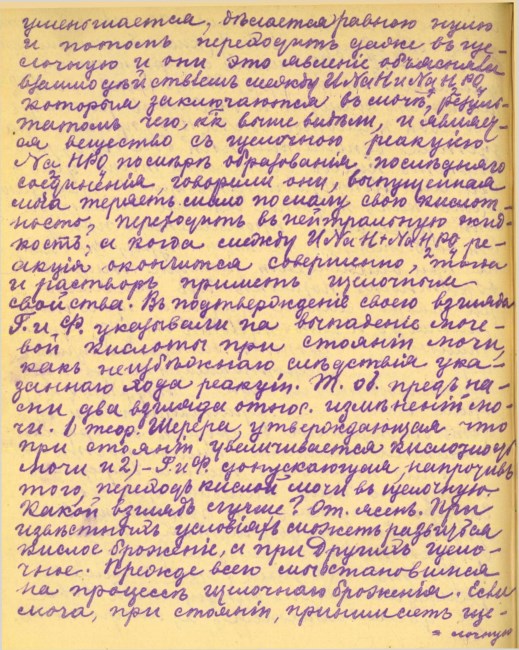 уменьшается, дѣлается равною нулю
и потомъ переходитъ даже въ ще-
лочную и они это явленіе объясняли
взаимодѣйствіемъ между UNaH и NaH₂PO₄
которыя заключаются въ мочѣ, резуль-
татомъ чего, кк выше видѣли, и являет-
ся вещество съ щелочною реакціею
Na₂HPO₄ по мѣрѣ образованія послѣдняго
соединенія, говорили они, выпущенная
моча теряетъ мало по малу свою кислот-
ность, переходитъ въ нейтральную жид-
кость, а когда между UNaH+NaH₂PO₄ ре-
акція окончится совершенно, тогда
и растворъ приметъ щелочныя
свойства. Въ подтвержденіе своего взгляда
Г. и Ф. указывали на выпаденіе моче-
вой кислоты при стояніи мочи,
какъ неизбѣжнаго слѣдствія ука-
заннаго хода реакціи. Т. об. предъ на-
ми два взгляда относ. измѣненій мо-
чи. 1) теор. Шерера, утверждающая что
при стояніи увеличивается кислотность
мочи и 2) – Г. и Ф. допускающая, напротивъ
того, переходъ кислой мочи въ щелочную.
Какой взглядъ лучше? От. ясенъ. При
извѣстныхъ условіяхъ можетъ развиться
кислое броженіе, а при другихъ щелоч-
ное. Прежде всего мы остановимся
на процессѣ щелочнаго броженія. Если
моча, при стояніи, принимаетъ ще-
= лочную